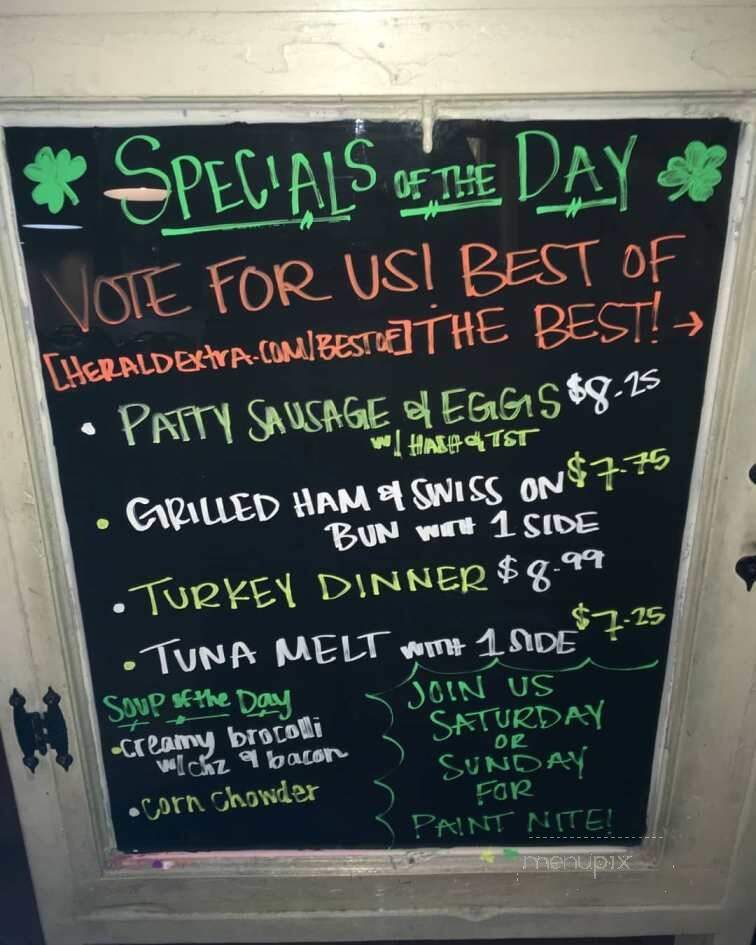 SPECIALS OF THE DAY
VOTE FOR US! BEST OF
[HERALDEXTRA.COM/BESTOF] THE BEST! →
• PATTY SAUSAGE & EGGS $8.25
w/ HASH & TST
• GRILLED HAM & SWISS ON $7.75
BUN WITH 1 SIDE
• TURKEY DINNER $8.99
• TUNA MELT WITH 1 SIDE $7.25
SOUP of the Day
• creamy brocolli
w/ chz & bacon
• corn chowder
JOIN US
SATURDAY
OR
SUNDAY
FOR
PAINT NITE!
menupix